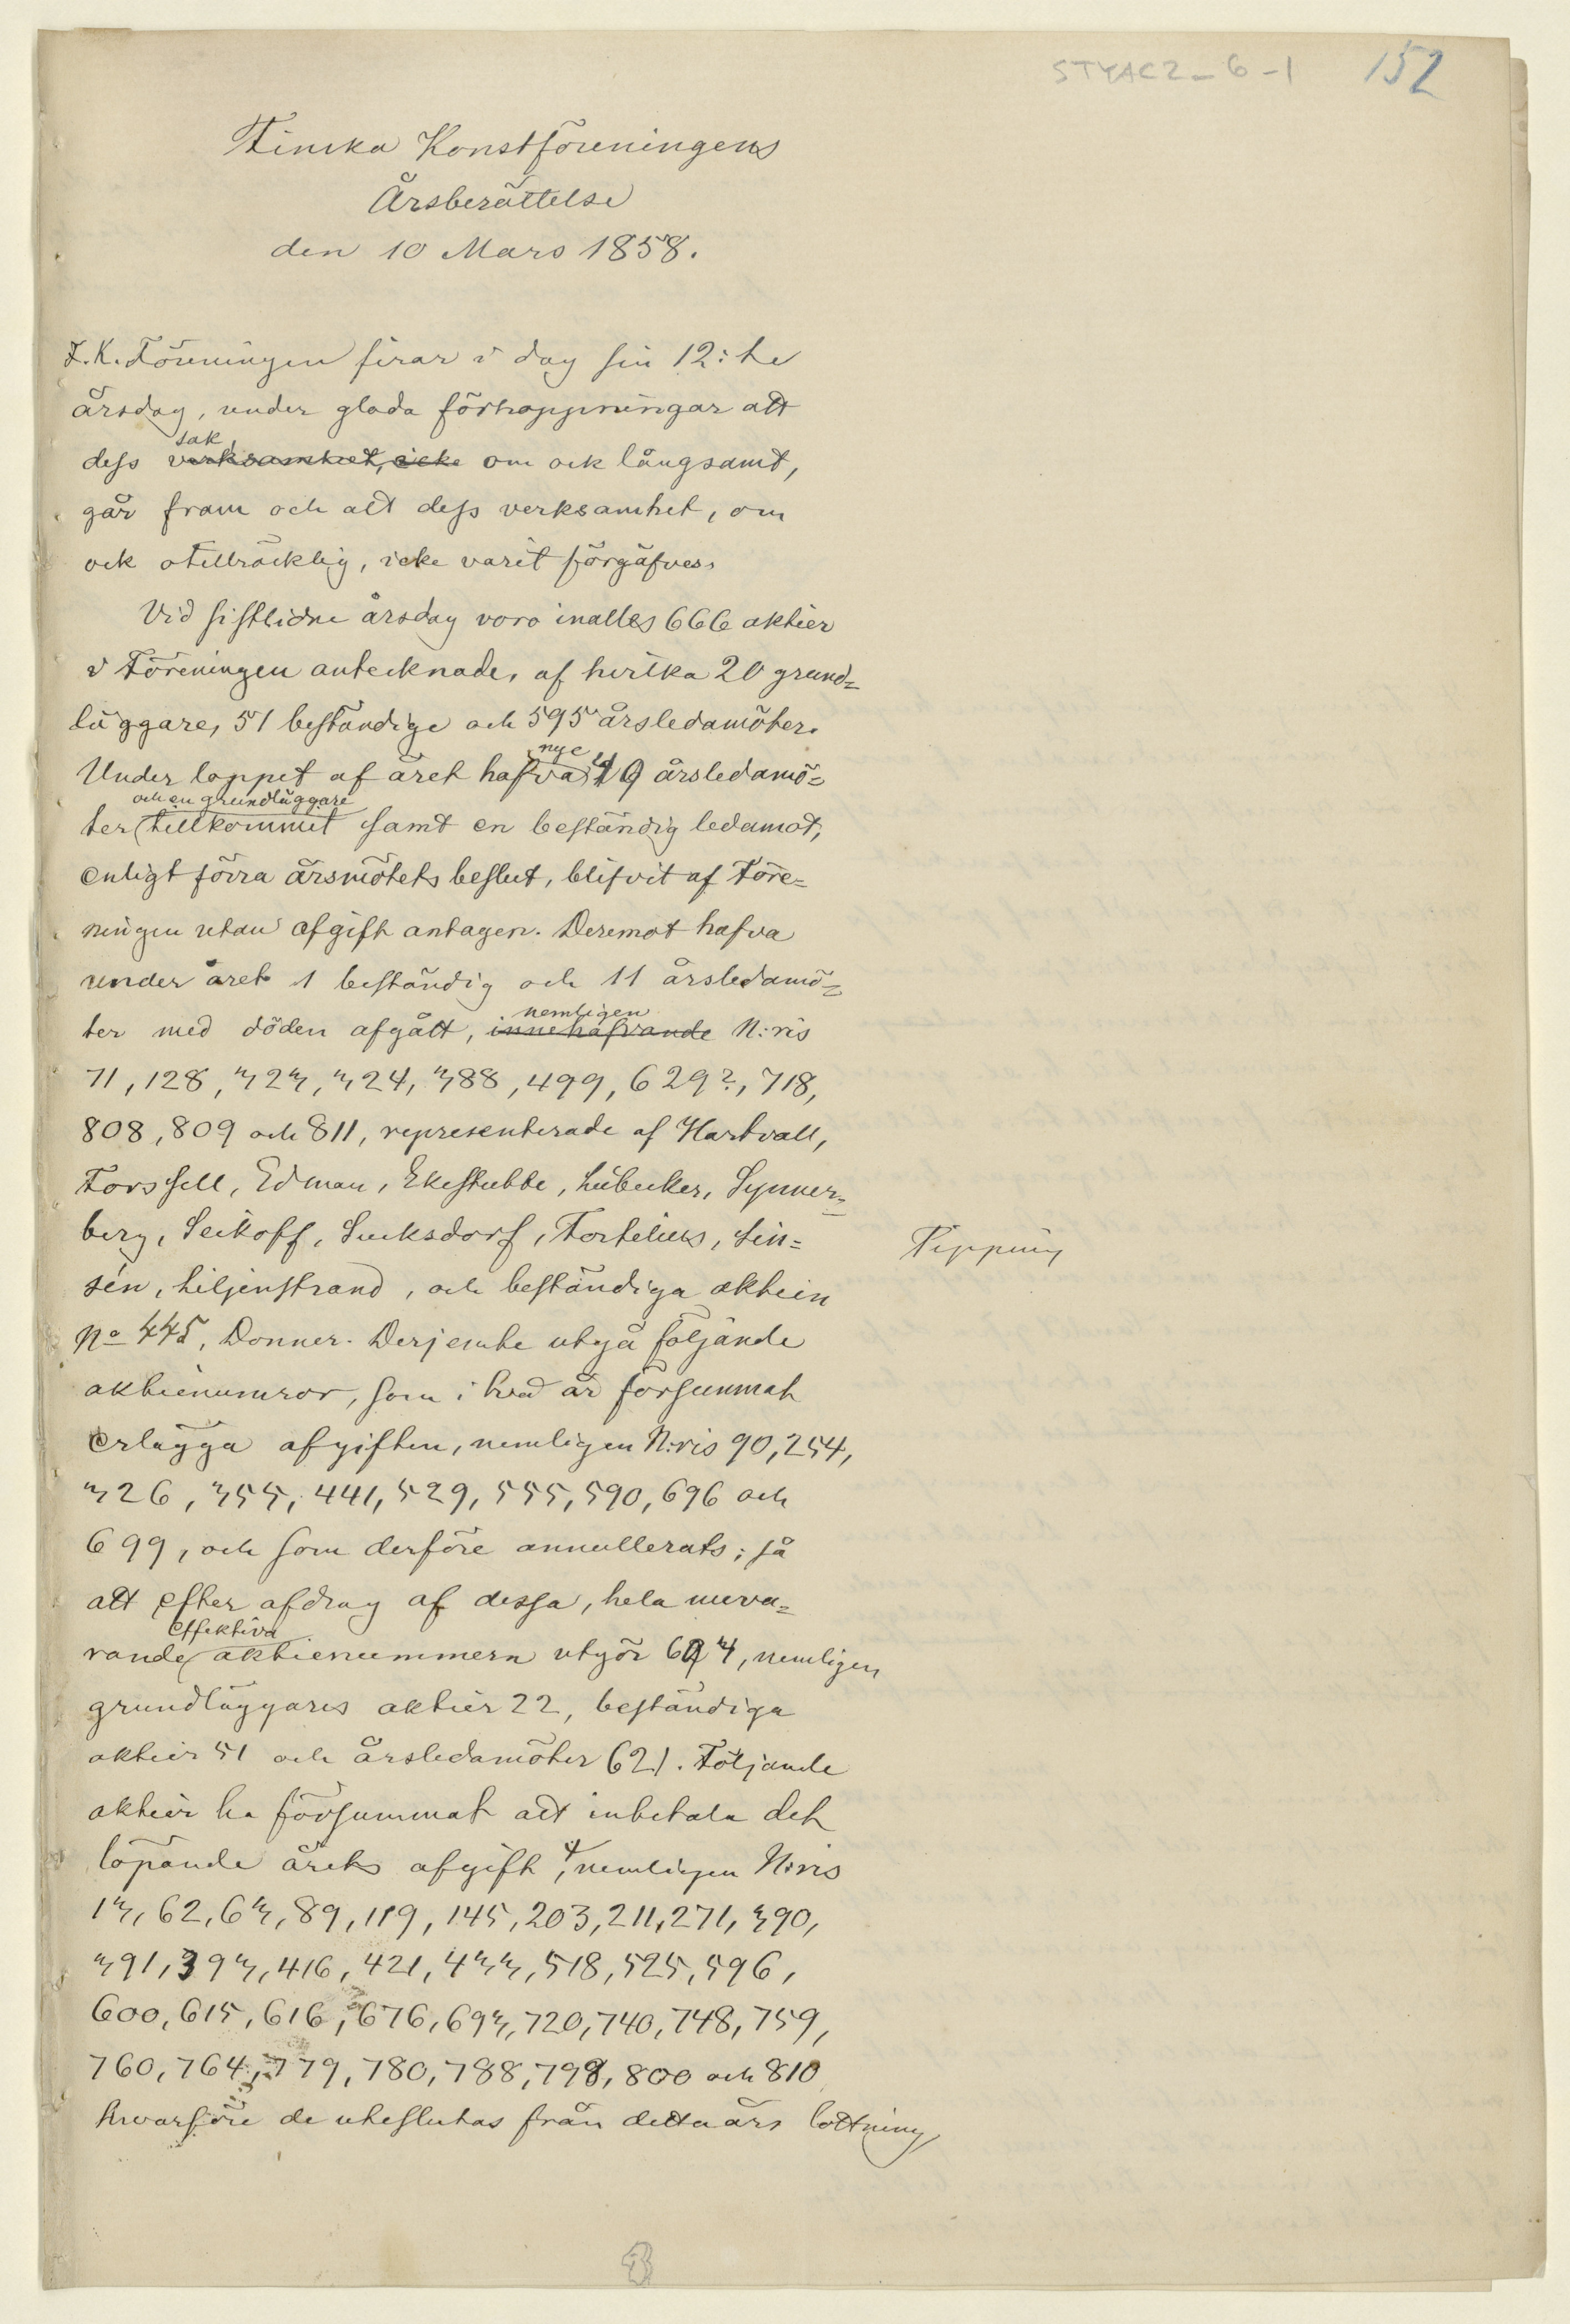 STYAC2-6-1 152
Finska Konstföreningens
Årsberättelse
den 10 Mars 1858.
F.K. Föreningen firar i dag sin 12:te
årsdag, under glada förhoppningar att
sak,
dess verksamhet, icke om ock långsamt,
går fram och att dess verksamhet, om
ock otillräcklig, icke varit förgäfves.
Vid sistlidne årsdag voro inalles 666 aktier
i Föreningen antecknade, af hvilka 20 grund=
läggare, 51 beständige och 595 årsledamöter.
nye
Under loppet af året hafva 49 årsledamö=
och en grundläggare
ter tillkommit samt en beständig ledamot,
enligt förra årsmötets beslut, blifvit af Före=
ningen utan afgift antagen. Deremot hafva
under året 1 beständig och 11 årsledamö=
nemligen
ter med döden afgått, innehafvande N:ris
71, 128, 323, 324, 388, 499, 629?, 718,
808, 809 och 811, representerade af Hartvall,
Forssell, Edman, Ekestubbe, Lübecker, Synner=
berg, Seikoff, Sucksdorf, Fortelius, Lin=
Tipping
sén, Liljenstrand, och beständiga aktien
No 445, Donner. Derjemte utgå följande
aktienumror, som i två år försummat
erlägga afgiften, nemligen N:ris 90, 254,
326, 355, 441, 529, 555, 590, 696 och
699, och som derföre annullerats; så
att efter afdrag af dessa, hela nuva=
effektiva
rande aktienummern utgör 694, nemligen
grundläggares aktier 22, beständiga
aktier 51 och årsledamöter 621. Följande
aktier ha försummat att inbetala det
löpande årets afgift, nemligen N:ris
13, 62, 63, 89, 119, 145, 203, 211, 271, 390,
391, 393, 416, 421, 433, 518, 525, 596,
600, 615, 616, 676, 693, 720, 740, 748, 759,
760, 764, 779, 780, 788, 798, 800 och 810
hvarföre de uteslutas från detta års lottning